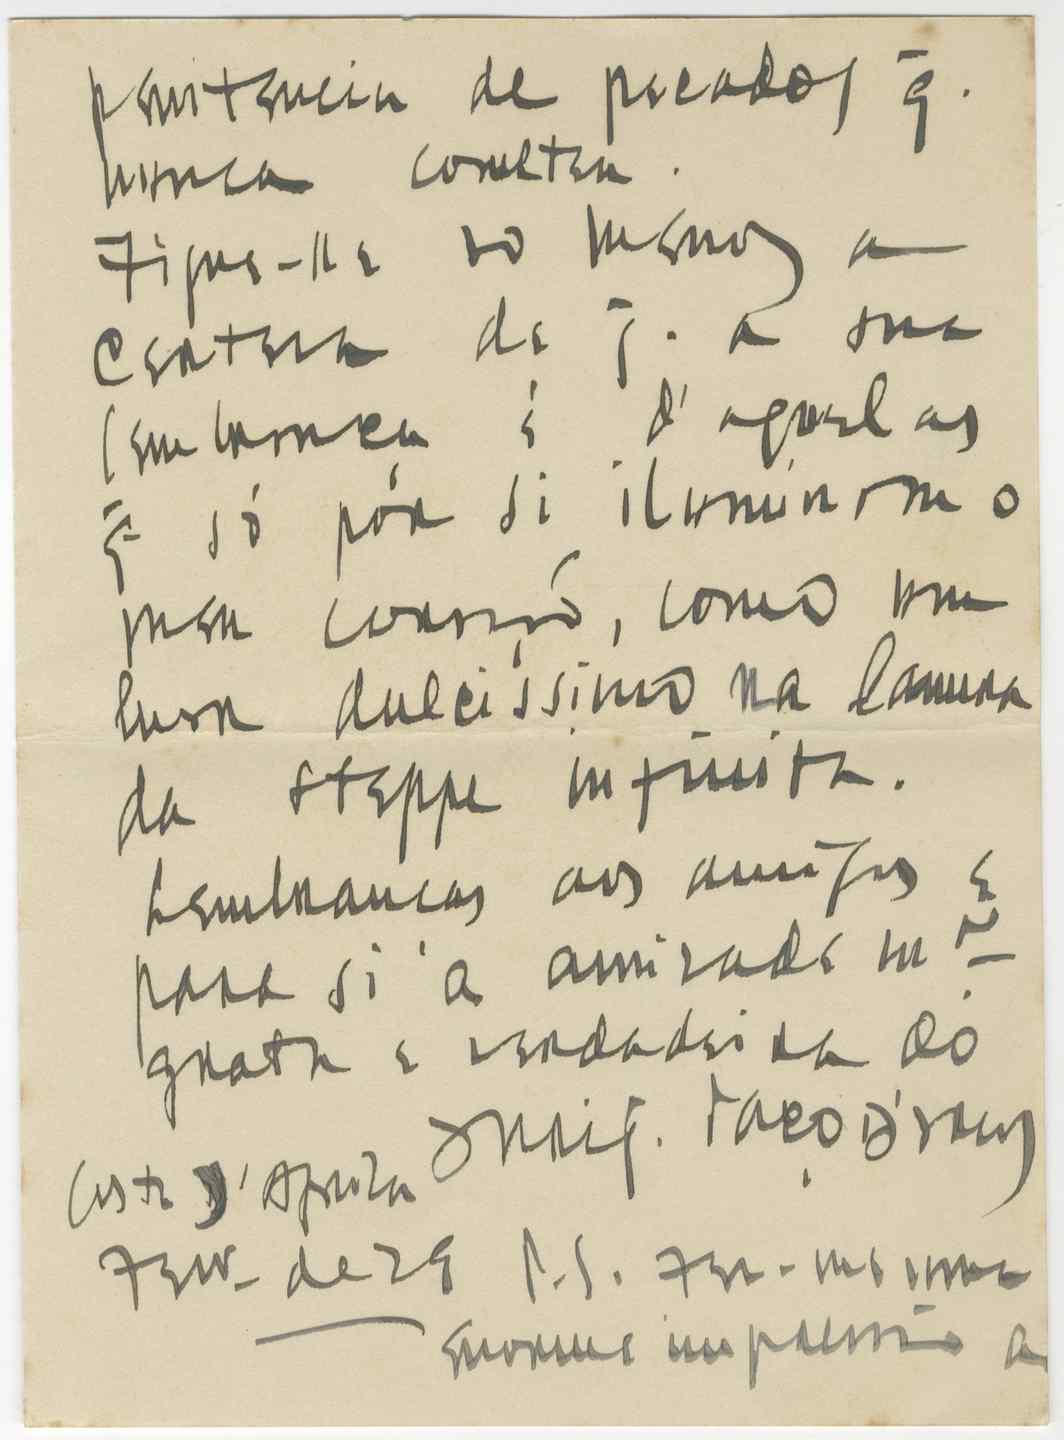 penitencia de pecados q̄.
nunca cometeu.
Fique-lhe ao menos a
certeza de q̄. a sua
lembrança é d'aquelas
q̄ só pôr si iluminam o
meu coração, como um
luar dulcissimo na lamura
da steppe infinita.
Lembranças aos amigos e
para si a amizade mto
grata e verdadeira do
Taço d'Arcos
Costa d'Aguila
Fev- de 29 P.S. Fez-me uma
enorme impressão a